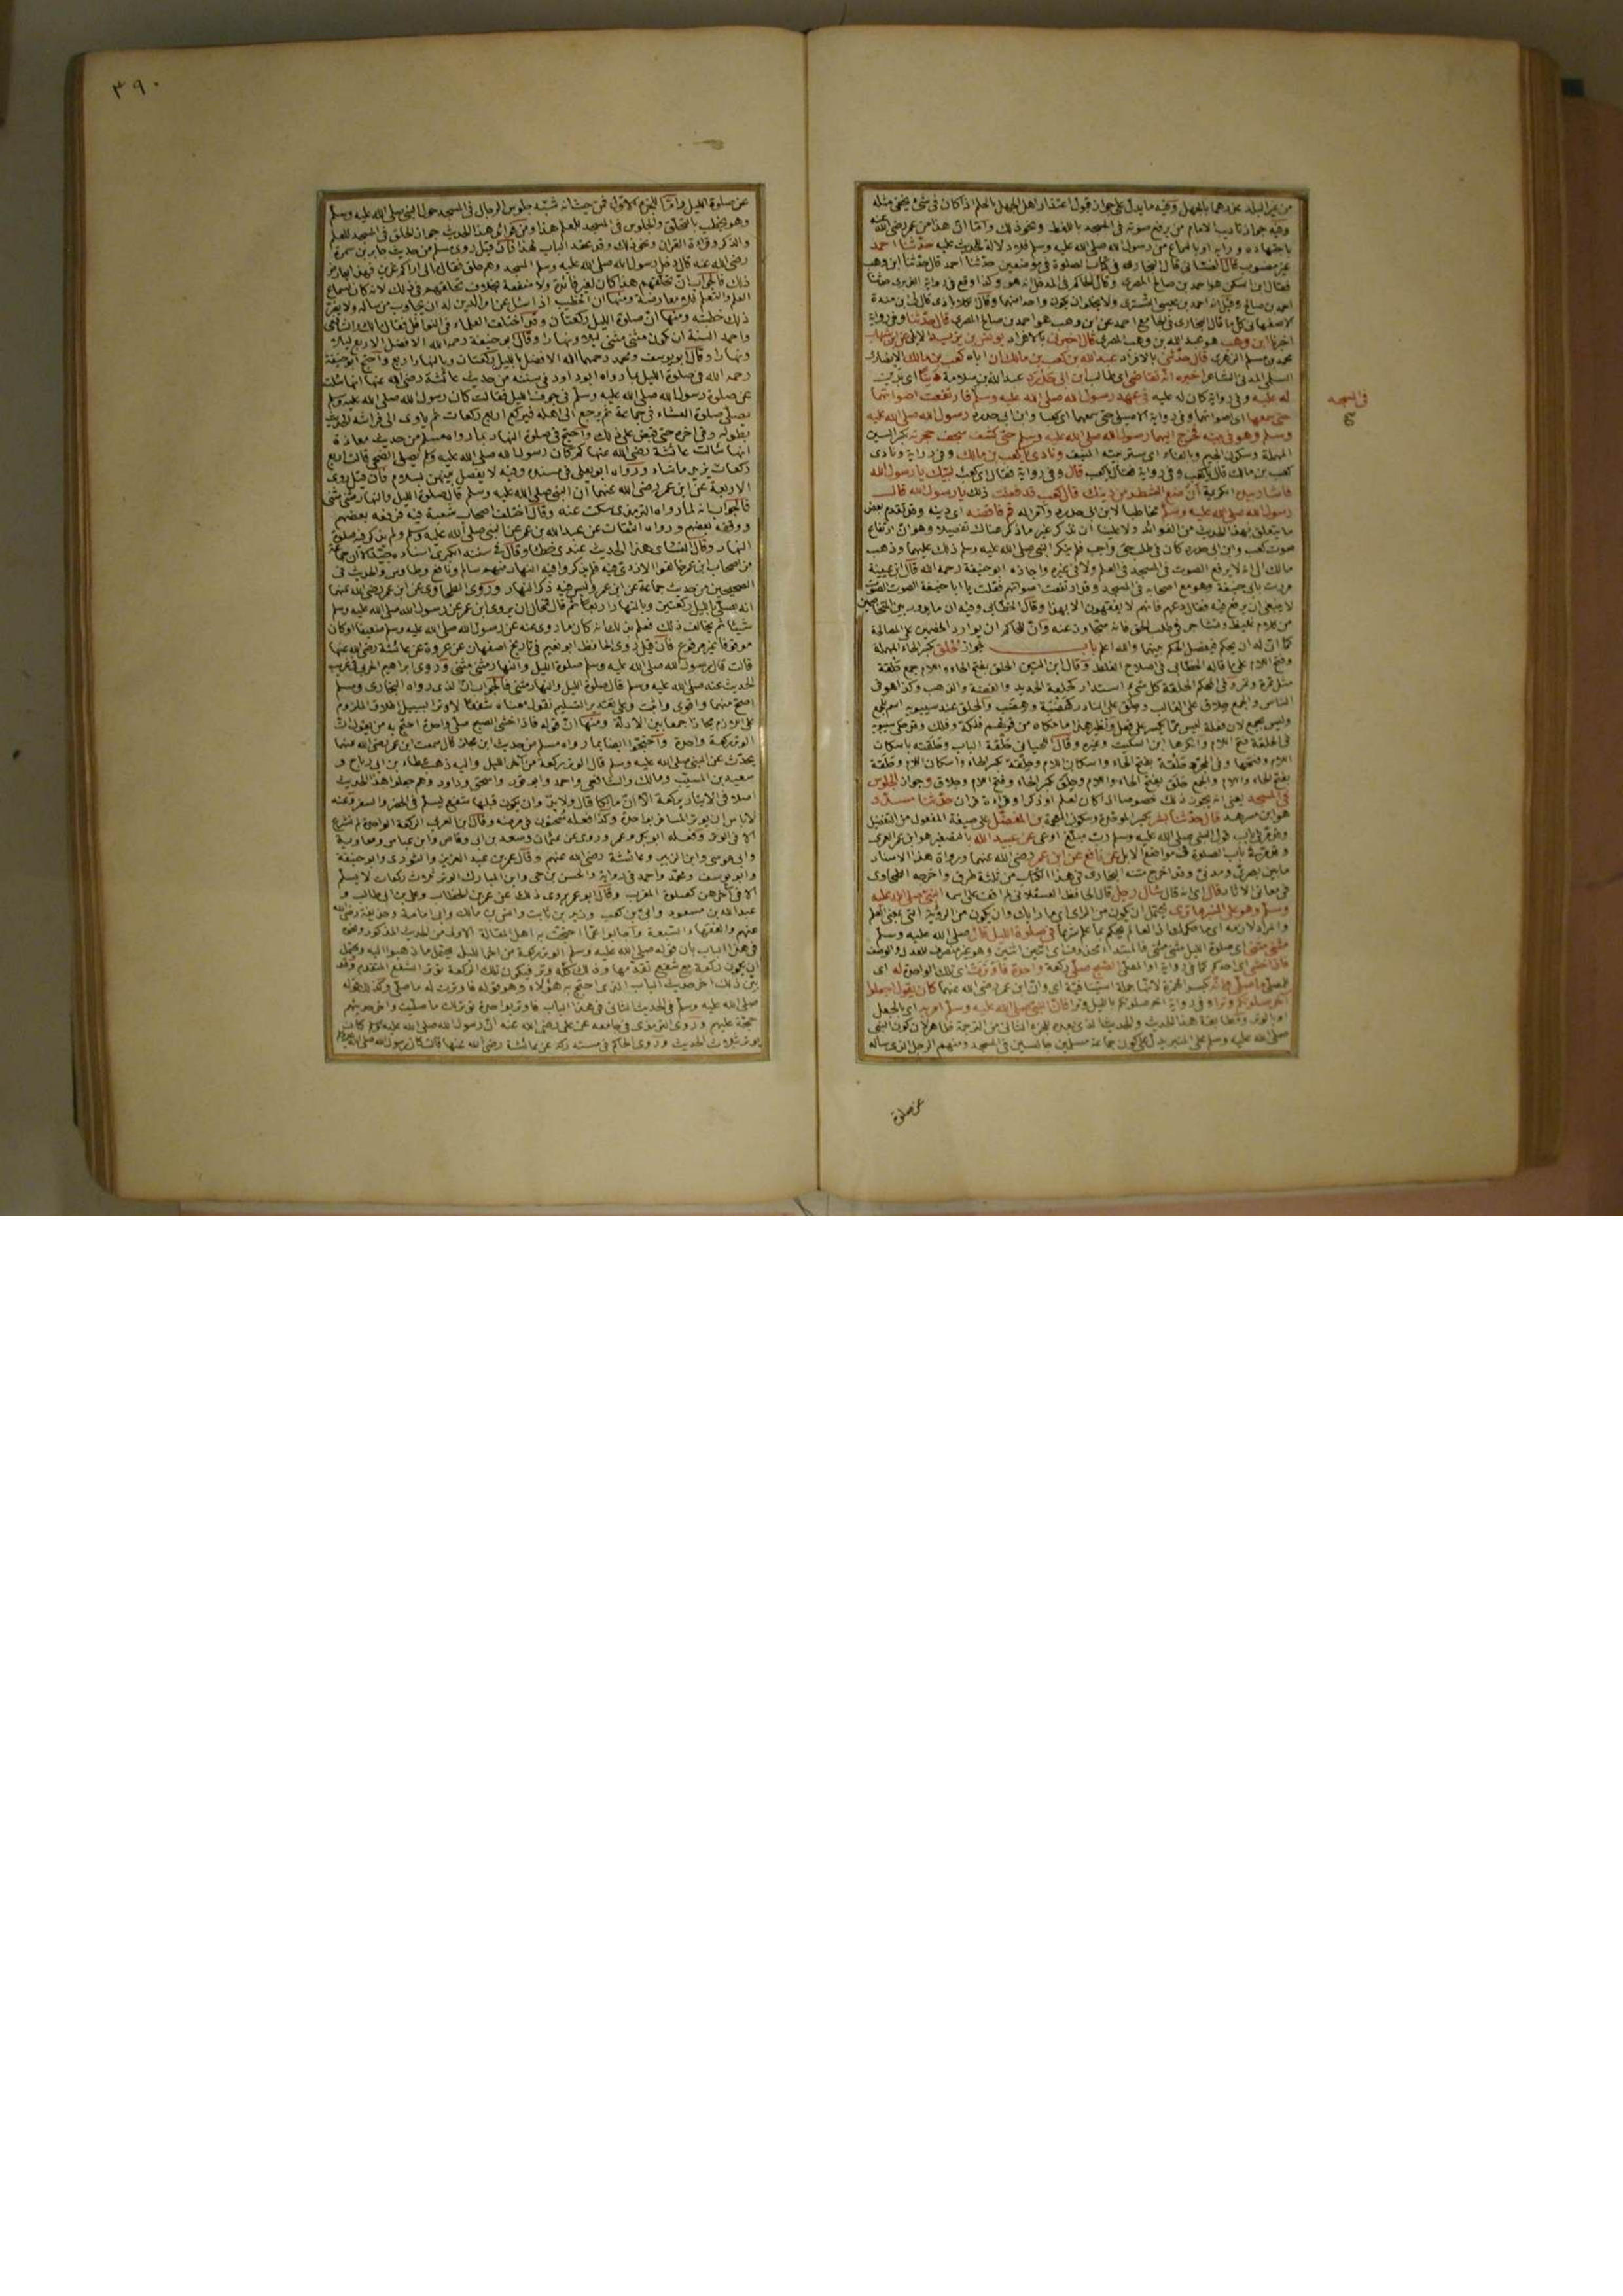 ٣٩٠
من غير البلد عزرهما بالجهل وفيه ما يدل على جواز قبول اعتذار اهل الجهل بالحكم اذا كان في شئ يخفى مثله
وفيه جواز تاديب الامام من يرفع صوته في المسجد باللغط ونحو ذلك
باجتهاده ورايه او بالسماع من رسول الله صلى الله عليه وسلم حدثنا احمد
غير منسوب قال الغساني قال البخاري في كتاب الصلوة في موضعين حدثنا احمد قال حدثنا ابن وهب
فقال ابن السكن هو احمد بن صالح المصري وقال الحاكم في المدخل انه هو
احمد بن صالح وقيل انه احمد بن عيسى التستري ولا يخلو ان يكون واحدا منهما
الاصفهاني كل ما قال البخاري في الجامع احمد عن ابن وهب هو احمد بن صالح المصري قال حدثنا وفي رواية
اخبرنا ابن وهب هو عبد الله بن وهب المصري قال اخبرني بالافراد يونس بن يزيد الايلي عن ابن شهاب
محمد بن مسلم الزهري قال حدثني بالافراد عبد الله بن كعب بن مالك ان اباه كعب بن مالك الانصاري
السلمي المدني الشاعر اخبره انه تقاضى اي طالب ابن ابي حدرد عبد الله بن سلامة دينا اي بدين
له عليه وفي رواية كان له عليه في عهد رسول الله صلى الله عليه وسلم فارتفعت اصواتهما
حتى سمعها اي اصواتهما وفي رواية الاصيلي حتى سمعهما اي كعبا وابن ابي حدرد رسول الله صلى الله عليه
وسلم وهو في بيته فخرج اليهما رسول الله صلى الله عليه وسلم حتى كشف سجف حجرته بكسر السين
المهملة وسكون الجيم وبالفاء اي ستر بيته ونادى يا كعب بن مالك وفي رواية ونادى
كعب بن مالك قال يا كعب وفي رواية فقال يا كعب قال وفي رواية فقال اي كعب لبيك يا رسول الله
فاشار بيده الكريمة ان ضع الشطر من دينك قال كعب قد فعلت ذلك يا رسول الله قال
رسول الله صلى الله عليه وسلم مخاطبا لابن ابي حدرد قم فاقضه اي دينه وقد تقدم بعض
ما يتعلق بهذا الحديث من الفوائد ولا علينا ان نذكر غير ما ذكر هناك تفصيلا وهو ان ارتفاع
صوت كعب وابن ابي حدرد كان في طلب حق واجب فلم ينكر النبي صلى الله عليه وسلم ذلك عليهما وذهب
مالك الى انه لا يرفع الصوت في المسجد في العلم ولا في غيره واجازه ابو حنيفة رحمه الله قال ابن عيينة
مررت بابي حنيفة وهو مع اصحابه في المسجد وقد ارتفعت اصواتهم فقلت يا ابا حنيفة الصوت
لا ينبغي ان يرفع فيه فقال دعهم فانهم لا يفقهون الا بهذا وقال الخطابي وفيه ان ما يدور بين المتخاصمين
من كلام غليظ وتشاجر في طلب الحق فانه متجاوز عنه وان للحاكم ان يراود الخصمين على المصالحة
كما ان له ان يحكم فيفصل الحكم بينهما والله اعلم باب جواز الحلق بكسر الحاء المهملة
وفتح اللام على ما قاله الخطابي في اصلاح الغلط وقال ابن التين الحلق بفتح الحاء واللام جمع حلقة
الحلقة كل شيء استدار كحلقة الحديد والفضة والذهب وكذا هو في
الناس والجمع حلاق على الغالب وحلق على النادر كهضبة وهضب والحلق عند سيبويه اسم للجمع
في المسجد يعني انه يجوز ذلك خصوصا اذا كان لعلم او ذكر او قراءة قران حدثنا مسدد
هو ابن مسرهد قال حدثنا بشر بكسر الموحدة وسكون المعجمة بن المفضل على صيغة المفعول من التفضيل
عن عبيد الله بالتصغير هو ابن عمر العمري
عن نافع عن ابن عمر رضي الله عنهما ورواة هذا الاسناد
ما بين بصري ومدني وقد اخرج متنه البخاري في هذا الكتاب من ثلثة طرق واخرجه الطحاوي
في معاني الاثار قال اي انه قال سال رجل النبي صلى الله عليه
وسلم وهو على المنبر ما ترى يحتمل ان يكون من الراي وان يكون من الرؤية التي بمعنى العلم
في صلوة الليل قال صلى الله عليه وسلم
مثنى مثنى اي صلوة الليل مثنى مثنى
فاذا خشي اي احدكم الصبح صلى ركعة واحدة فاوترت اي تلك الواحدة له اي
للمصلي ما صلى وانه بكسر الهمزة لانها جملة استينافية اي وان ابن عمر رضي الله عنهما كان يقول اجعلوا
اخر صلوتكم وترا وفي رواية اخر صلوتكم بالليل وترا فان النبي صلى الله عليه وسلم امر به اي بالجعل
صلى الله عليه وسلم على المنبر يدل على كون جماعة مسلمين جالسين في المسجد ومنهم الرجل الذي سأله
في المسجد
صح
عن صلوة
عن صلوة الليل واما الجزء الاول فمن حيث انه شبه جلوس الرجال في المسجد حول النبي صلى الله عليه وسلم
وهو يخطب بالتحلق والجلوس في المسجد للعلم هذا ومن فوائد هذا الحديث جواز الحلق في المسجد للعلم
والذكر وقراءة القران ونحو ذلك وقد عقد الباب لهذا فان قيل روى مسلم من حديث جابر بن سمرة
رضي الله عنه قال دخل رسول الله صلى الله عليه وسلم المسجد وهم حلق فقال مالي اراكم عزين فهذا يعارض
ذلك فالجواب ان تحلقهم هذا كان لغير فائدة ولا منفعة بخلاف تحلقهم في ذلك لانه كان لسماع
العلم والتعلم فلا معارضة ومنها ان الخطيب اذا سئل عن امر الدين له ان يجاوب من سأله ولا يضر
ذلك خطبته ومنها ان صلوة الليل ركعتان وقد اختلف العلماء في النوافل فقال مالك والشافعي
واحمد السنة ان تكون مثنى مثنى ليلا ونهارا وقال ابو حنيفة رحمه الله الافضل الاربع ليلا
ونهارا وقال ابو يوسف ومحمد رحمهما الله الافضل بالليل ركعتان وبالنهار اربع واحتج ابو حنيفة
رحمه الله في صلوة الليل بما رواه ابو داود في سننه من حديث عائشة رضي الله عنها انها سئلت
عن صلوة رسول الله صلى الله عليه وسلم في جوف الليل فقالت كان رسول الله صلى الله عليه وسلم
يصلي صلوة العشاء في جماعة ثم يرجع الى اهله فيركع اربع ركعات ثم ياوي الى فراشه الحديث
بطوله وفي اخره حتى قبض على ذلك واحتج في صلوة النهار بما رواه مسلم من حديث معاذة
انها سألت عائشة رضي الله عنها كم كان رسول الله صلى الله عليه وسلم يصلي الضحى قالت اربع
ركعات يزيد ما شاء ورواه ابو يعلى في مسنده وفيه لا يفصل بينهن بسلام فان قيل روى
الاربعة عن ابن عمر رضي الله عنهما ان النبي صلى الله عليه وسلم قال صلوة الليل والنهار مثنى مثنى
فالجواب انه لما رواه الترمذي سكت عنه وقال اختلف اصحاب شعبة فيه فرفعه بعضهم
ووقفه بعضهم ورواه الثقات عن عبد الله بن عمر عن النبي صلى الله عليه وسلم ولم يذكر فيه صلوة
النهار وقال النسائي هذا الحديث عندي خطا وقال في سننه الكبرى اسناده جيد الا ان جماعة
من اصحاب ابن عمر خالفوا الازدي فيه فلم يذكروا فيه النهار منهم سالم ونافع وطاوس والحديث في
الصحيحين من حديث جماعة عن ابن عمر وليس فيه ذكر النهار وروى الطحاوي عن ابن عمر رضي الله عنهما
انه يصلي بالليل ركعتين وبالنهار اربعا ثم قال فمحال ان يروي ابن عمر عن رسول الله صلى الله عليه وسلم
شيئا ثم يخالف ذلك فعلم بذلك انه كان ما روى عنه عن رسول الله صلى الله عليه وسلم ضعيفا او كان
موقوفا غير مرفوع فان قيل روى الحافظ ابو نعيم في تاريخ اصفهان عن عروة عن عائشة رضي الله عنها
قالت قال رسول الله صلى الله عليه وسلم صلوة الليل والنهار مثنى مثنى وروى ابراهيم الحربي في غريب
الحديث عنه صلى الله عليه وسلم قال صلوة الليل والنهار مثنى مثنى فالجواب ان الذي رواه البخاري ومسلم
اصح منهما واقوى واثبت وعلى تقدير التسليم نقول معناه شفعا لا وترا بسبيل اطلاق الملزوم
على اللازم مجازا جمعا بين الادلة ومنها ان قوله فاذا خشي الصبح صلى واحدة احتج به من يقول ان
الوتر ركعة واحدة واحتجوا ايضا بما رواه مسلم من حديث ابن مجلز قال سمعت ابن عمر رضي الله عنهما
يحدث عن النبي صلى الله عليه وسلم قال الوتر ركعة من اخر الليل واليه ذهب عطاء بن ابي رباح و
سعيد بن المسيب ومالك والشافعي واحمد وابو ثور واسحق وداود وهم جعلوا هذا الحديث
اصلا في الايتار بركعة الا ان مالكا قال ولا بد وان يكون قبلها شفع ليسلم في الحضر والسفر وعنه
لا باس ان يوتر المسافر بواحدة وكذا فعله سحنون في مرضه وقال ابن العربي الركعة الواحدة لم تشرع
الا في الوتر وفعله ابو بكر وعمر وروي عن عثمان وسعد بن ابي وقاص وابن عباس ومعاوية
وابي موسى وابن الزبير وعائشة رضي الله عنهم وقال عمر بن عبد العزيز والثوري وابو حنيفة
وابو يوسف ومحمد واحمد في رواية والحسن بن حي وابن المبارك الوتر ثلاث ركعات لا يسلم
الا في اخرهن كصلوة المغرب وقال ابو عمر يروى ذلك عن عمر بن الخطاب وعلي بن ابي طالب و
عبد الله بن مسعود وابي بن كعب وزيد بن ثابت وانس بن مالك وابي امامة وحذيفة رضي الله
عنهم والفقهاء السبعة واجابوا عما احتجت به اهل المقالة الاولى من الحديث المذكور ونحوه
في هذا الباب بان قوله صلى الله عليه وسلم الوتر ركعة من اخر الليل يحتمل ما ذهبوا اليه ويحتمل
ان يكون ركعة مع شفع تقدمها وذلك كله وتر فيكون تلك الركعة توتر الشفع المتقدم وقد
بين ذلك اخر حديث الباب الذي احتج به هؤلاء وهو قوله فاوترت له ما صلى وكذلك قوله
صلى الله عليه وسلم في الحديث الثاني في هذا الباب فاوتر بواحدة توتر لك ما صليت واخر حديثهم
حجة عليهم وروى الترمذي في جامعه عن علي رضي الله عنه ان رسول الله صلى الله عليه وسلم كان
يوتر بثلاث الحديث وروى الحاكم في مستدركه عن عائشة رضي الله عنها قالت كان رسول الله صلى الله عليه وسلم